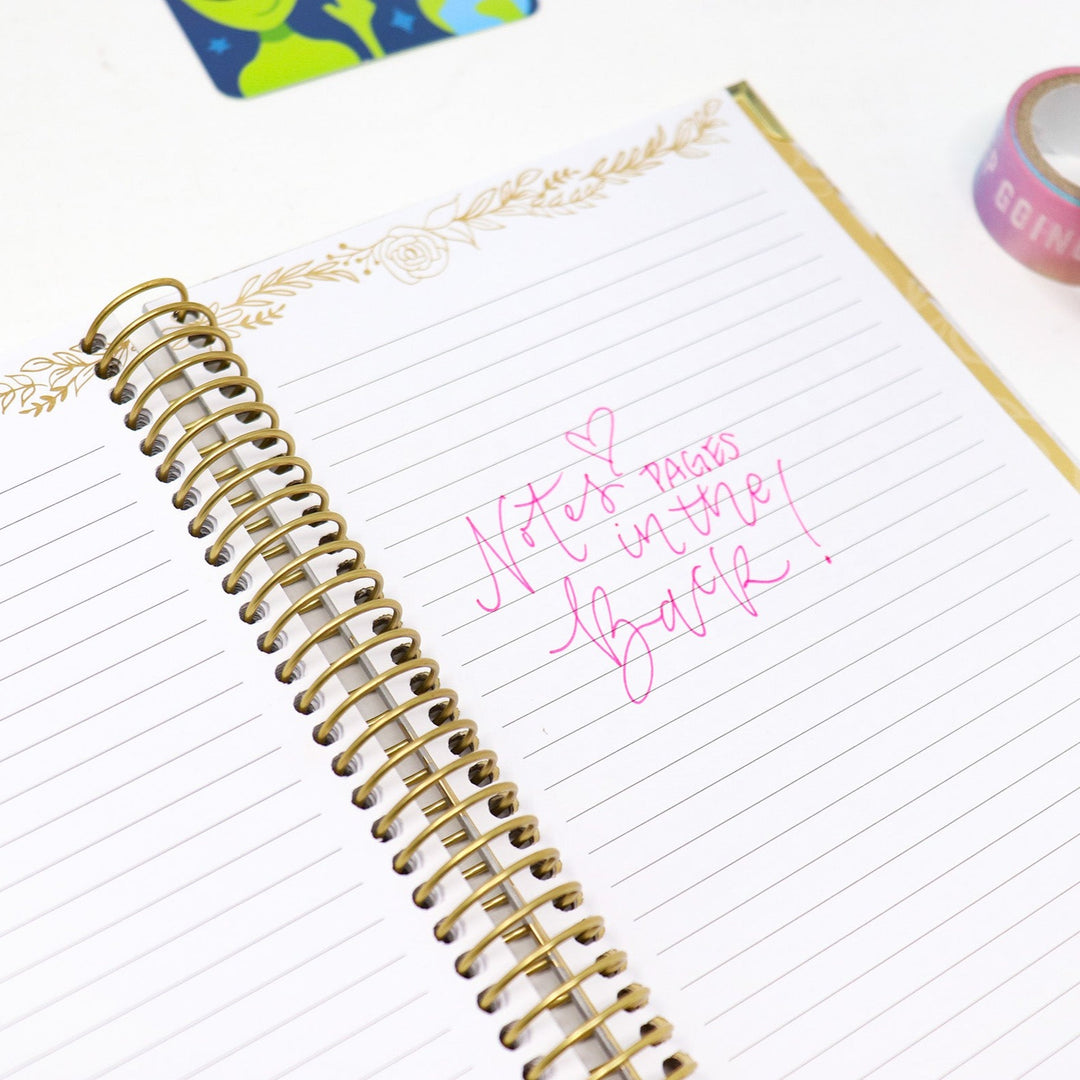 Notes PAGES
in the
Back!
GOING